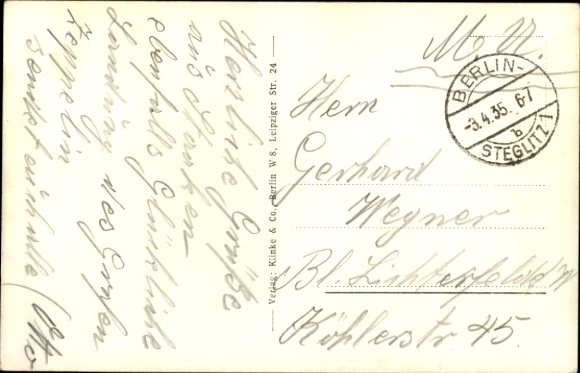 Herzliche Grüße
und danken
ebenfalls Glückliche
Landung des Grafen
Zeppelin
sendet
Otto
Verlag: Klinke & Co., Berlin W 8, Leipziger Str. 24
BERLIN-
-3.4.35. 6-7
b
STEGLITZ 1
Herrn
Gerhard
Wegner
Bl. Lichterfelde W
Köhlerstr 45.